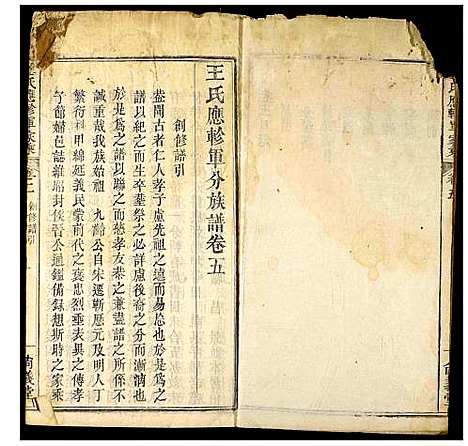 王氏應軫軍分族譜卷五
創修譜引
蓋聞古者仁人孝子慮先祖之遠而易忘也於是為之
譜以紀之而生卒墓祭之必詳慮後之分而漸漓也
於是為之譜以聯之而慈孝友恭之兼盡譜之所係不
誠重哉我族始祖 九齡公自宋遷蘄歷元及明人丁
繁衍科甲綿延義民蒙前代之褒忠烈垂表異之傳孝
子節婦邑誌維昭封侯晉公通鑑備錄想斯時之家乘
創修譜引
卷五